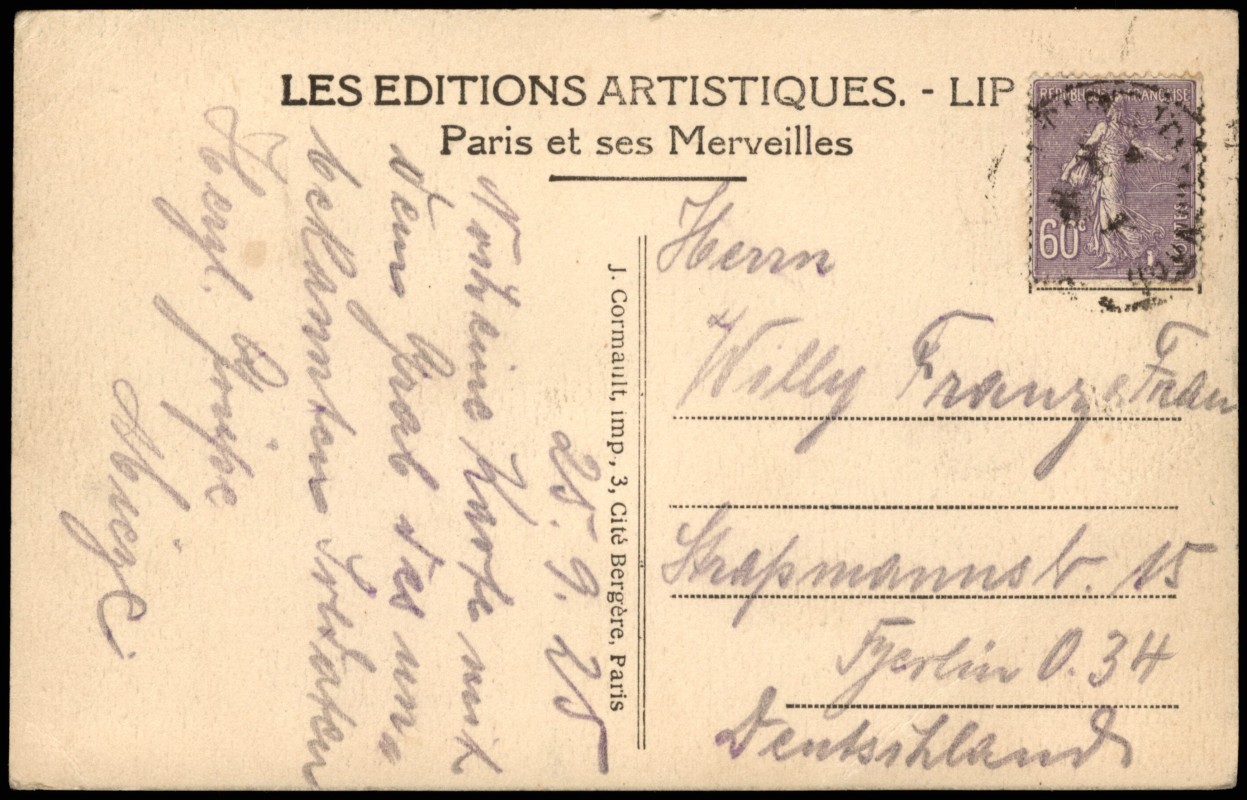 LES EDITIONS ARTISTIQUES. - LIP
Paris et ses Merveilles
REPUBLIQUE FRANÇAISE
60c
POSTES
25. 9. 25
Noch eine Karte mit
dem Grab des un
bekannten Soldaten
Herzl. Grüsse
J. Cormault, imp., 3, Cité Bergère, Paris
Herrn
Willy Franz & Frau
Straßmannstr. 15
Berlin O. 34
Deutschland